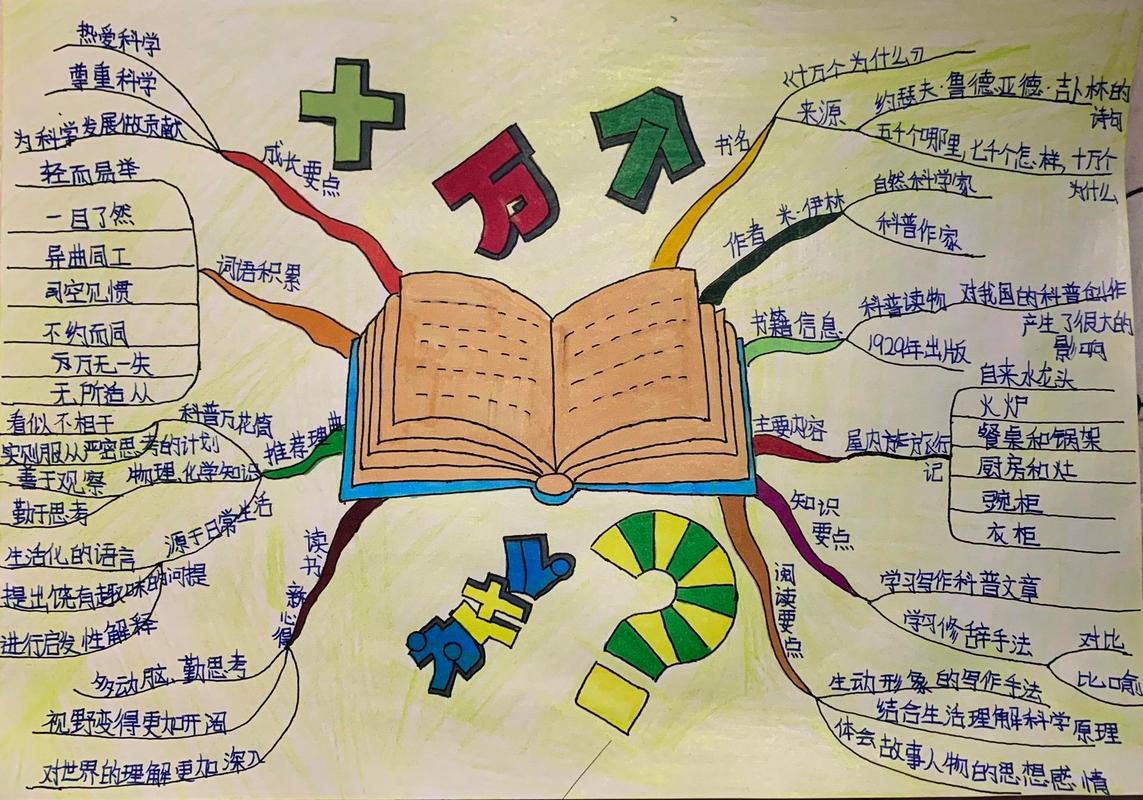 十万个为什么?
书名
《十万个为什么》
来源
约瑟夫·鲁德亚德·吉卜林的
诗句
五千个哪里,七千个怎样,十万个
为什么
作者
米·伊林
自然科学家
科普作家
书籍信息
科普读物
对我国的科普创作
产生了很大的
影响
1929年出版
主要内容
屋内旅行
记
自来水龙头
火炉
餐桌和锅架
厨房和灶
碗柜
衣柜
知识
要点
学习写作科普文章
学习修辞手法
对比
比喻
阅读要点
生动形象的写作手法
结合生活理解科学原理
体会故事人物的思想感情
成长要点
热爱科学
尊重科学
为科学发展做贡献
词语积累
轻而易举
一目了然
异曲同工
司空见惯
不约而同
万无一失
无所适从
推荐理由
科普万花筒
看似不相干
实则服从严密思考的计划
物理、化学知识
善于观察
勤于思考
源于日常生活
生活化的语言
提出饶有趣味的问提
进行启发性解释
读书
新心得
多动脑、勤思考
视野变得更加开阔
对世界的理解更加深入